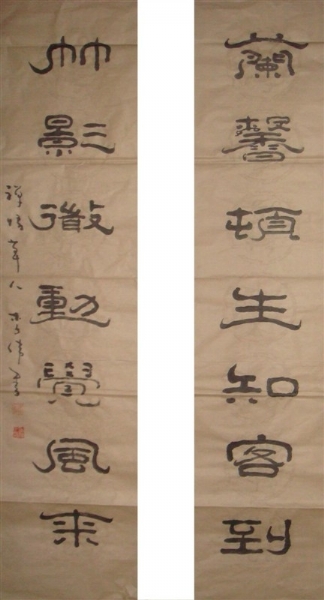 蘭馨頓生知客到
竹影徽動覺風来